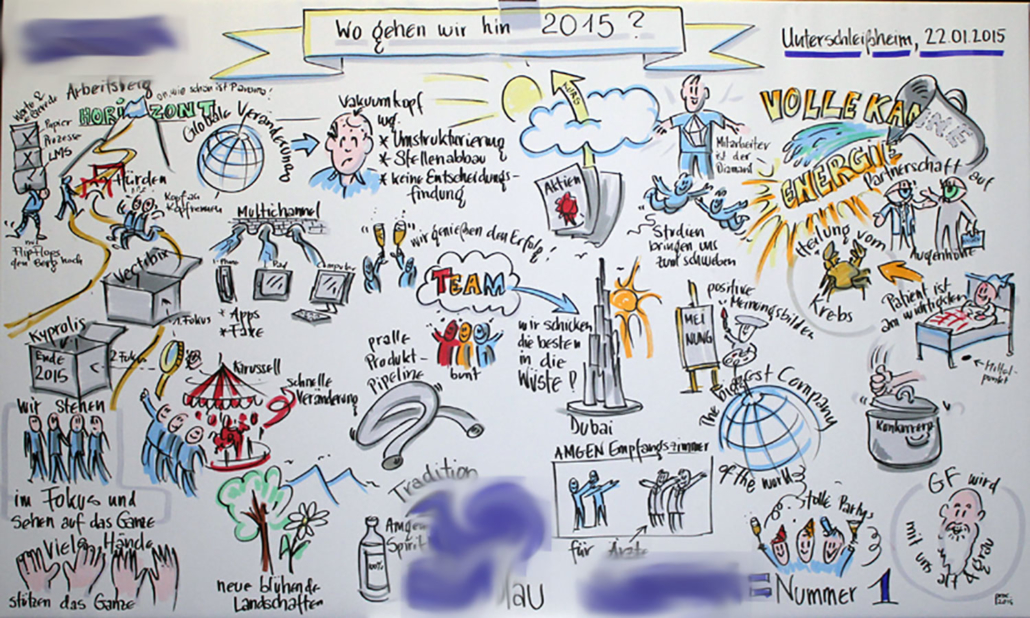 Wo gehen wir hin 2015?
Unterschleißheim, 22.01.2015
Arbeitsberg
HORIZONT
oh, wie schön ist Panama!
Papier
Prozesse
LMS
Hürden
Kopf an
Kopfrennen
FlipFlops
den Berg hoch
Globale Veränderung
Vakuumkopf
wg.
* Umstrukturierung
* Stellenabbau
* keine Entscheidungs-
findung
Aktien
Mitarbeiter
ist der
Diamant
Studien
bringen uns
zum schweben
VOLLE KANNE
ENERGIE
Partnerschaft auf
Augenhöhe
Heilung vom
Krebs
Patient ist
am wichtigsten
Mittel-
punkt
Multichannel
Phone
Pad
Computer
* Apps
* Faxe
"wir genießen den Erfolg!"
TEAM
bunt
wir schicken
die besten
in die
Wüste!
Dubai
positive
Meinungsbilder
MEI
NUNG
Vectibix
1. Fokus
Kyprolis
Ende
2015
2. Fokus
Karussell
schnelle
Veränderung
pralle
Produkt-
Pipeline
The biggest Company
of the world
Konkurrenz
Wir stehen
im Fokus und
sehen auf das Ganze
Viele Hände
stützen das Ganze
neue blühende
Landschaften
Tradition
Amgen
Spirit
100%
lau
AMGEN Empfangszimmer
für Ärzte
tolle Partys
= Nummer 1
GF wird
mit uns
grau
2015